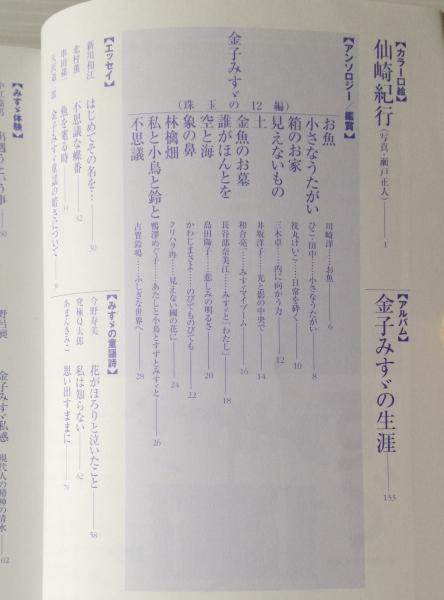 【カラー口絵】
仙崎紀行(写真・瀬戸正人)── 1
【アルバム】
金子みすゞの生涯── 133
【アンソロジー/鑑賞】
金子みすゞの(珠玉12編)
お魚
小さなうたがい
箱のお家
見えないもの
土
金魚のお墓
誰がほんとを
空と海
象の鼻
林檎畑
私と小鳥と鈴と
不思議
川崎洋……お魚 6
ひこ・田中……小さなうたがい 8
筏丸けいこ……日常を砕く 10
三木卓……内に向かう力 12
井坂洋子……光と影の中央で 14
和合亮一……みすゞマイブーム 16
長谷部奈美江……みすゞと『わたし』 18
島田陽子……悲しみの明るさ 20
かわじまさよ……のびてものびても 22
クリハラ冉……見えない國の花に 24
鴨澤めぐ子……あたしと小鳥とすずとみすゞと 26
古賀鈴鳴……ふしぎな世界へ 28
【エッセイ】
新川和江 はじめてその名を…── 30
北村薫 不思議な蝶番── 32
串田孫一 魚を葬る時── 34
矢沢宰一郎 金子みすゞ童謡の暗さについて
【みすゞの童謡詩】
今野寿美 花がほろりと泣いたこと── 58
究極Q太郎 私は知らない── 62
あまんきみこ 思い出すままに── 71
【みすゞ体験】
出遇うという事──
金子みすゞ私感 現代人の精神の清水──